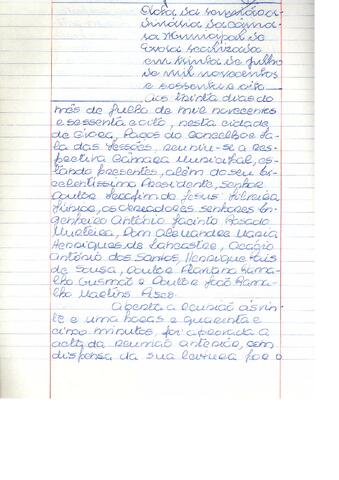 Acta da reunião or-
dinária da Câma-
ra Municipal de
Évora realizada
em trinta de julho
de mil novecentos
e sessenta e oito
Aos trinta dias do
mês de julho de mil novecentos
e sessenta e oito, nesta cidade
de Évora, Paços do Concelho e Sa-
la das Sessões, reuniu-se a res-
pectiva Câmara Municipal, es-
tando presentes, além do seu Ex-
celentíssimo Presidente, senhor
Doutor Serafim de Jesus Silveira
Júnior, os vereadores senhores En-
genheiro António Jacinto Rosado
Murteira, Dom Alexandre Maria
Henriques de Lancastre, Olegário
António dos Santos, Henrique Luís
de Sousa, Doutor Mariano Rama-
lho Gusmão e Doutor José Rama-
lho Martins Pisco.
Aberta a reunião às vin-
te e uma horas e quarenta e
cinco minutos, foi aprovada a
acta da reunião anterior, com
dispensa da sua leitura por o